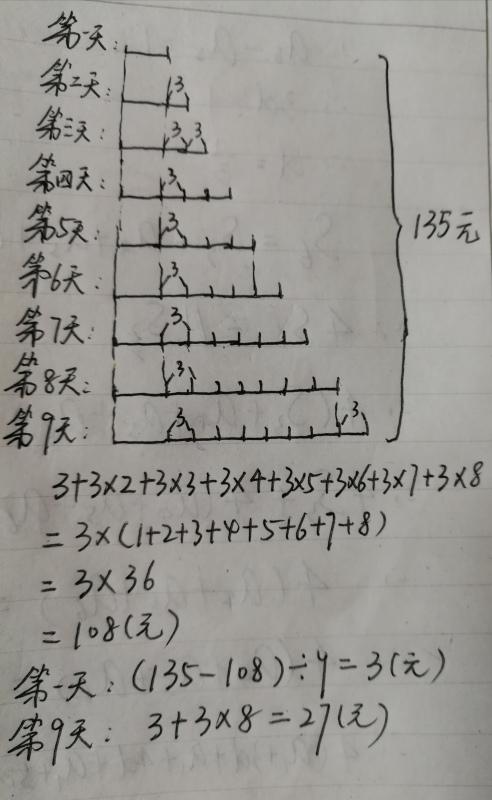 第一天:
第二天: 3
第三天: 3 3
第四天: 3
第5天: 3
第6天: 3
第7天: 3
第8天: 3
第9天: 3 3
135元
3+3×2+3×3+3×4+3×5+3×6+3×7+3×8
=3×(1+2+3+4+5+6+7+8)
=3×36
=108(元)
第一天: (135-108)÷9=3(元)
第9天: 3+3×8=27(元)